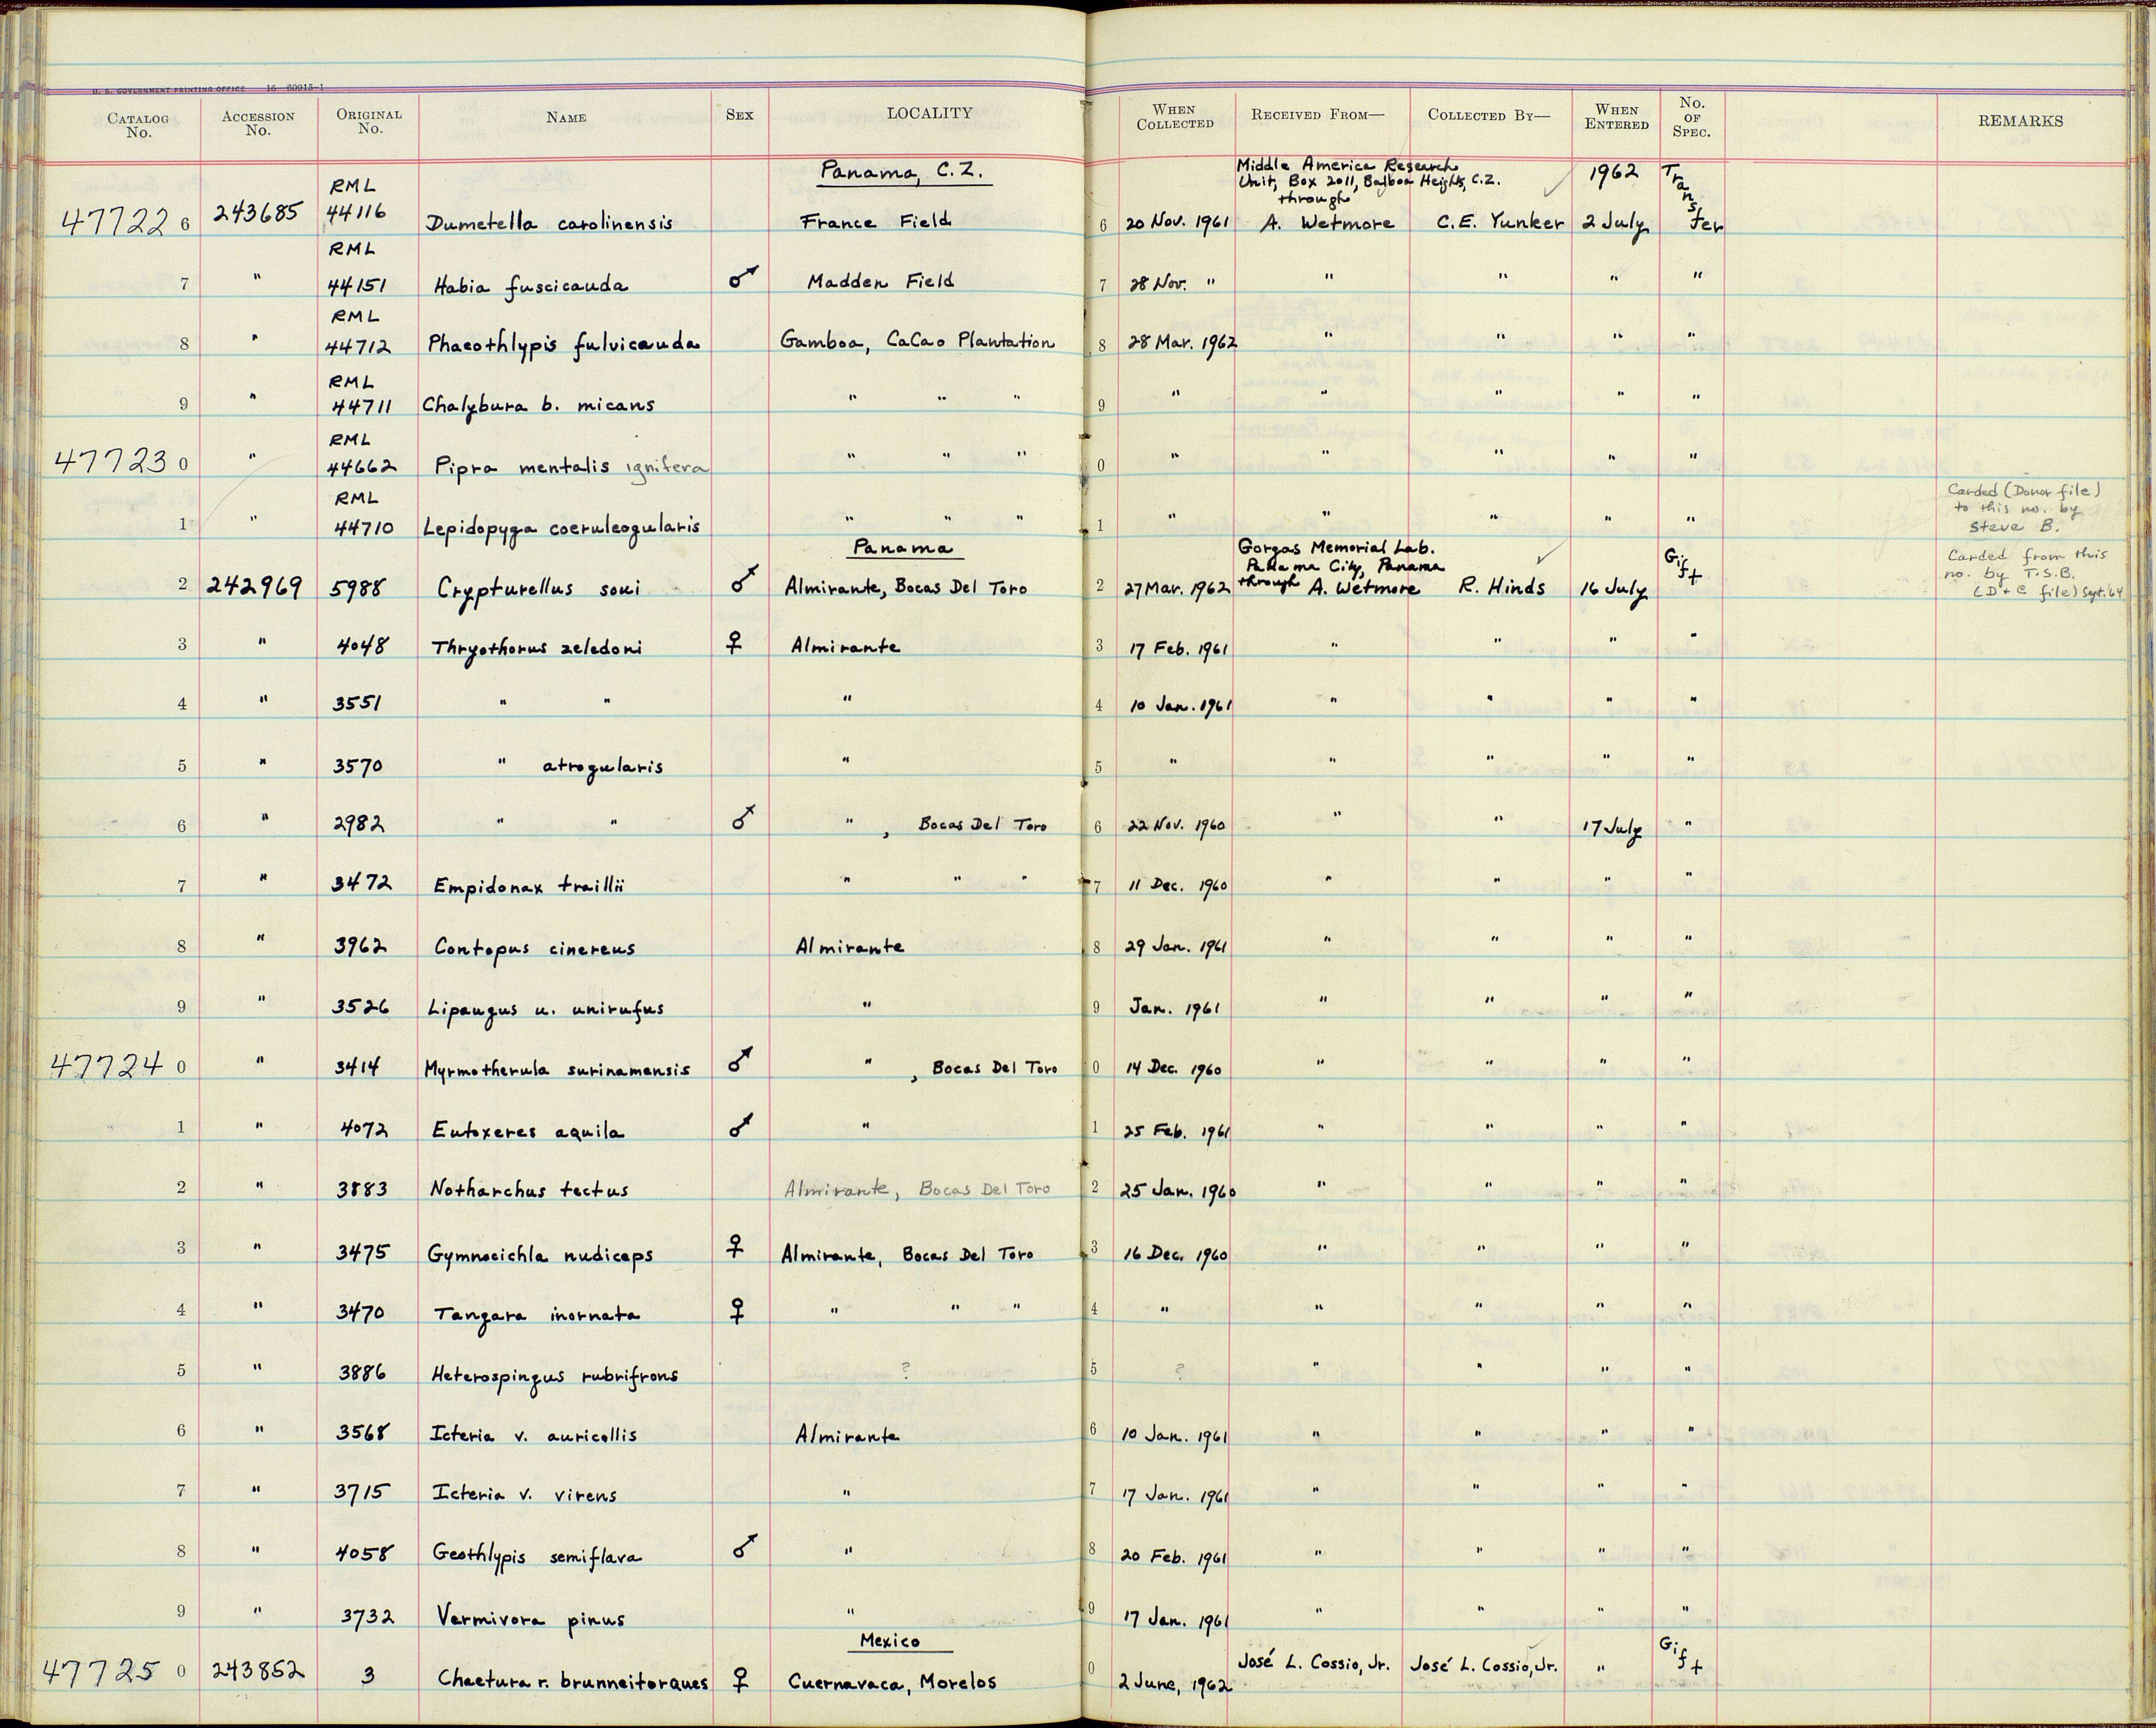 U. S. GOVERNMENT PRINTING OFFICE 16—60915-1
CATALOG No. ACCESSION No. ORIGINAL No. NAME SEX LOCALITY WHEN COLLECTED RECEIVED FROM— COLLECTED BY— WHEN ENTERED No. OF SPEC. REMARKS
Panama, C.Z. Middle America Research Unit, Box 2011, Balboa Heights, C.Z. through 1962
47722 6 243685 RML 44116 Dumetella carolinensis France Field 6 20 Nov. 1961 A. Wetmore C.E. Yunker 2 July Transfer
7 " RML 44151 Habia fuscicauda ♂ Madden Field 7 28 Nov. " " " " "
8 " RML 44712 Phaeothlypis fulvicauda Gamboa, CaCao Plantation 8 28 Mar. 1962 " " " "
9 " RML 44711 Chalybura b. micans " " " 9 " " " " "
47723 0 " RML 44662 Pipra mentalis ignifera " " " 0 " " " " "
1 " RML 44710 Lepidopyga coeruleogularis " " " 1 " " " " " Carded (Donor file) to this no. by Steve B.
Panama Gorgas Memorial Lab. Panama City, Panama
2 242969 5988 Crypturellus soui ♂ Almirante, Bocas Del Toro 2 27 Mar. 1962 through A. Wetmore R. Hinds 16 July Gift Carded from this no. by T.S.B. (D + C file) Sept. 64
3 " 4048 Thryothorus zeledoni ♀ Almirante 3 17 Feb. 1961 " " " "
4 " 3551 " " " 4 10 Jan. 1961 " " " "
5 " 3570 " atrogularis " 5 " " " " "
6 " 2982 " " ♂ " , Bocas Del Toro 6 22 Nov. 1960 " " 17 July "
7 " 3472 Empidonax traillii " " " 7 11 Dec. 1960 " " " "
8 " 3962 Contopus cinereus Almirante 8 29 Jan. 1961 " " " "
9 " 3526 Lipaugus u. unirufus " 9 Jan. 1961 " " " "
47724 0 " 3414 Myrmotherula surinamensis ♂ " , Bocas Del Toro 0 14 Dec. 1960 " " " "
1 " 4072 Eutoxeres aquila ♂ " 1 25 Feb. 1961 " " " "
2 " 3883 Notharchus tectus Almirante, Bocas Del Toro 2 25 Jan. 1960 " " " "
3 " 3475 Gymnocichla nudiceps ♀ Almirante, Bocas Del Toro 3 16 Dec. 1960 " " " "
4 " 3470 Tangara inornata ♀ " " " 4 " " " " "
5 " 3886 Heterospingus rubrifrons ? 5 ? " " " "
6 " 3568 Icteria v. auricollis Almirante 6 10 Jan. 1961 " " " "
7 " 3715 Icteria v. virens " 7 17 Jan. 1961 " " " "
8 " 4058 Geothlypis semiflava ♂ " 8 20 Feb. 1961 " " " "
9 " 3732 Vermivora pinus " 9 17 Jan. 1961 " " " "
Mexico
47725 0 243852 3 Chaetura r. brunneitorques ♀ Cuernavaca, Morelos 0 2 June, 1962 José L. Cossio, Jr. José L. Cossio, Jr. " Gift